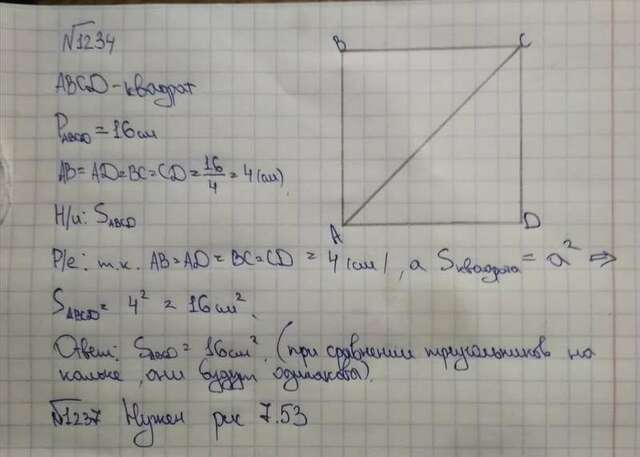 №1234
ABCD - квадрат
P_ABCD = 16 см
AB = AD = BC = CD = 16/4 = 4 (см)
Н/и: S_ABCD
Р/е: т.к. AB = AD = BC = CD = 4 (см), а S_квадрата = a² ⇒
S_ABCD = 4² = 16 см².
Ответ: S_ABCD = 16 см². (при сравнении треугольников на
кальке, они будут одинаковы).
№1237 Нужен рис 7.53
B
C
A
D